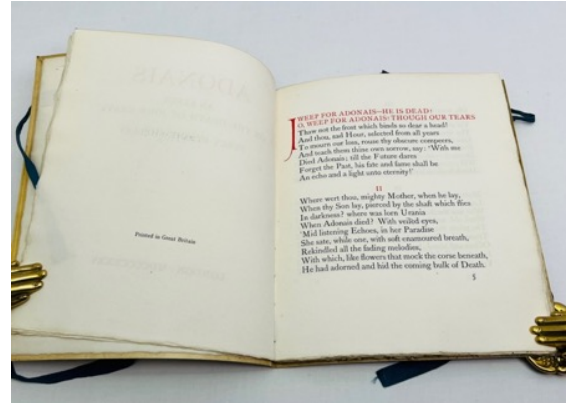 Printed in Great Britain
I WEEP FOR ADONAIS—HE IS DEAD!
O, WEEP FOR ADONAIS! THOUGH OUR TEARS
Thaw not the frost which binds so dear a head!
And thou, sad Hour, selected from all years
To mourn our loss, rouse thy obscure compeers,
And teach them thine own sorrow, say: 'With me
Died Adonais; till the Future dares
Forget the Past, his fate and fame shall be
An echo and a light unto eternity!'
II
Where wert thou, mighty Mother, when he lay,
When thy Son lay, pierced by the shaft which flies
In darkness? where was lorn Urania
When Adonais died? With veiled eyes,
'Mid listening Echoes, in her Paradise
She sate, while one, with soft enamoured breath,
Rekindled all the fading melodies,
With which, like flowers that mock the corse beneath,
He had adorned and hid the coming bulk of Death.
5